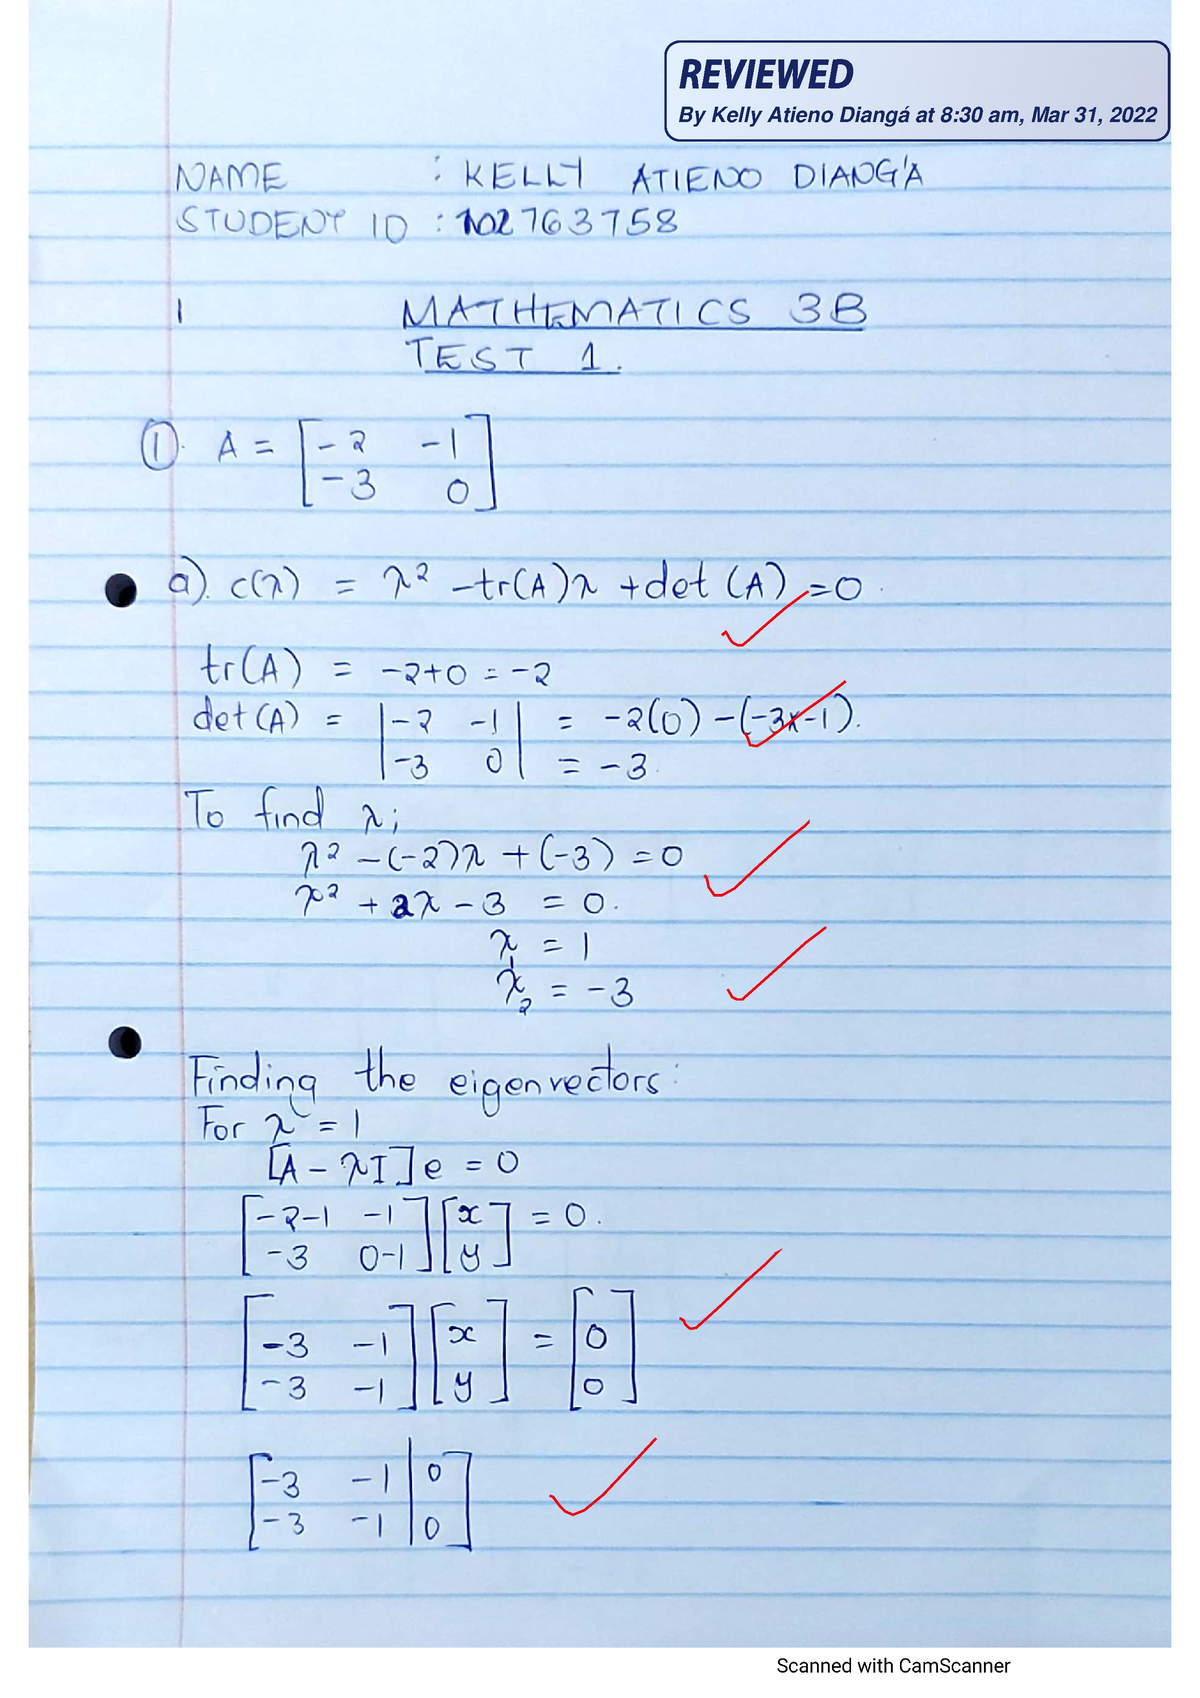 REVIEWED
By Kelly Atieno Diangá at 8:30 am, Mar 31, 2022
NAME : KELLY ATIENO DIANG'A
STUDENT ID : 102763758
1 MATHEMATICS 3B
TEST 1.
① A = [-2 -1
-3 0]
a). c(λ) = λ² - tr(A)λ + det (A) = 0.
tr(A) = -2+0 = -2
det(A) = |-2 -1| = -2(0) - (-3x-1).
|-3 0| = -3.
To find λ;
λ² - (-2)λ + (-3) = 0
λ² + 2λ - 3 = 0.
λ₁ = 1
λ₂ = -3
Finding the eigenvectors:
For λ = 1
[A - λI]e = 0
[-2-1 -1] [x] = 0.
[-3 0-1] [y]
[-3 -1] [x] = [0]
[-3 -1] [y] [0]
[-3 -1 | 0]
[-3 -1 | 0]
Scanned with CamScanner